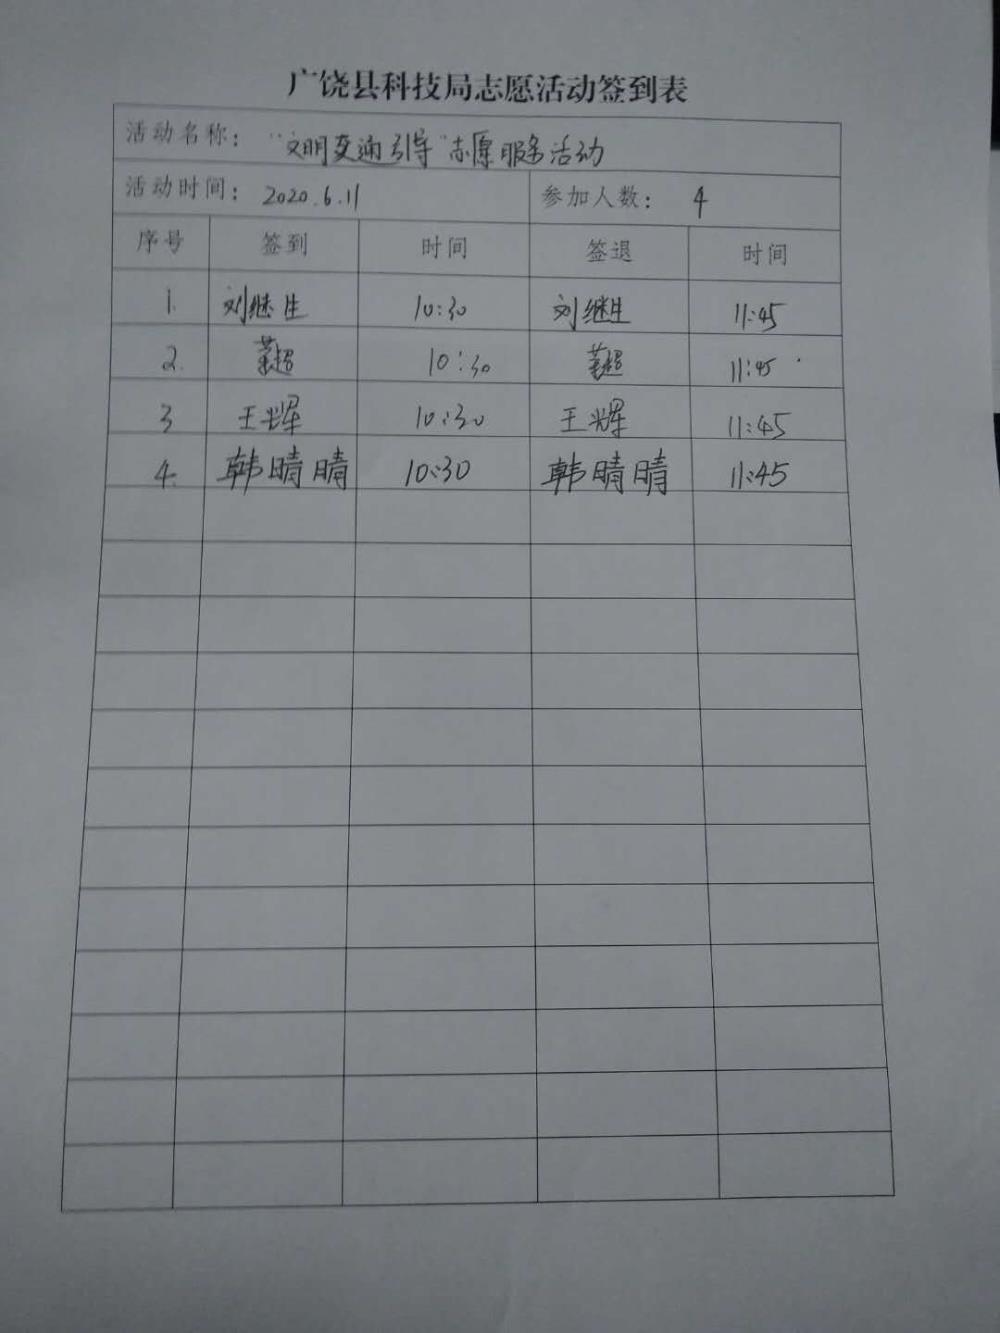 广饶县科技局志愿活动签到表
活动名称： "文明交通引导"志愿服务活动
活动时间： 2020.6.11 参加人数： 4
序号 签到 时间 签退 时间
1. 刘继生 10:30 刘继生 11:45
2. 10:30 11:45
3 王辉 10:30 王辉 11:45
4. 韩晴晴 10:30 韩晴晴 11:45